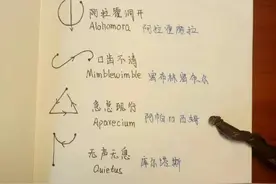 阿拉霍洞开
Alohamora 阿拉霍隆拉
口齿不清
Mimblewimble
急急现形
Aparecium 阿帕口西姆
无声无息
Quietus 库乐塔斯